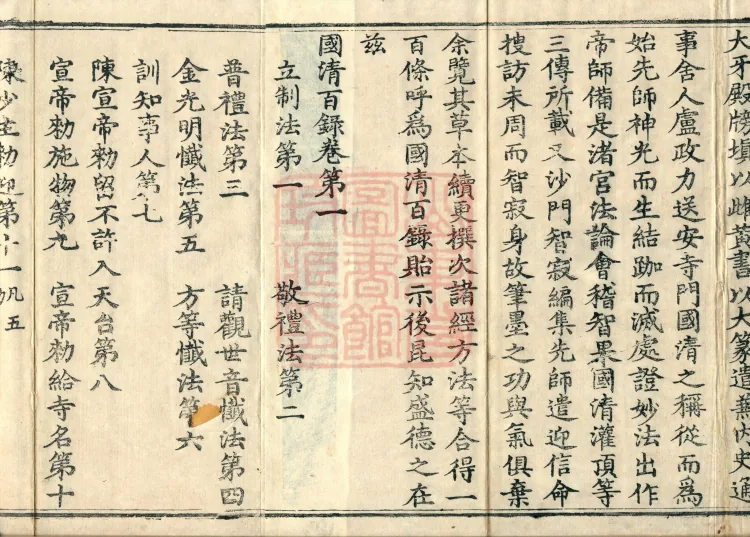 大牙殿牓填以雌黃書以大篆遣兼內史通
事舍人盧政力送安寺門國清之稱從而爲
始先師神光而生結跏而滅處證妙法出作
帝師備是渚宮法論會稽智果國清灌頂等
三傳所載又沙門智寂編集先師遣迎信命
搜訪未周而智寂身故筆墨之功與氣俱棄
余覽其草本續更撰次諸經方法等合得一
百條呼爲國清百錄貽示後昆知盛德之在
茲
國清百錄卷第一
立制法第一 敬禮法第二
普禮法第三 請觀世音懺法第四
金光明懺法第五 方等懺法第六
訓知事人第七
陳宣帝勅留不許入天台第八
宣帝勅施物第九 宣帝勅給寺名第十
陳少主勅迎第十一凡五